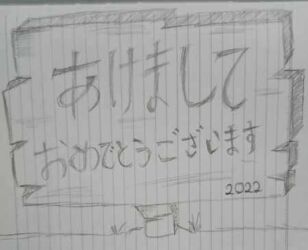 あけまして
おめでとうございます
2022